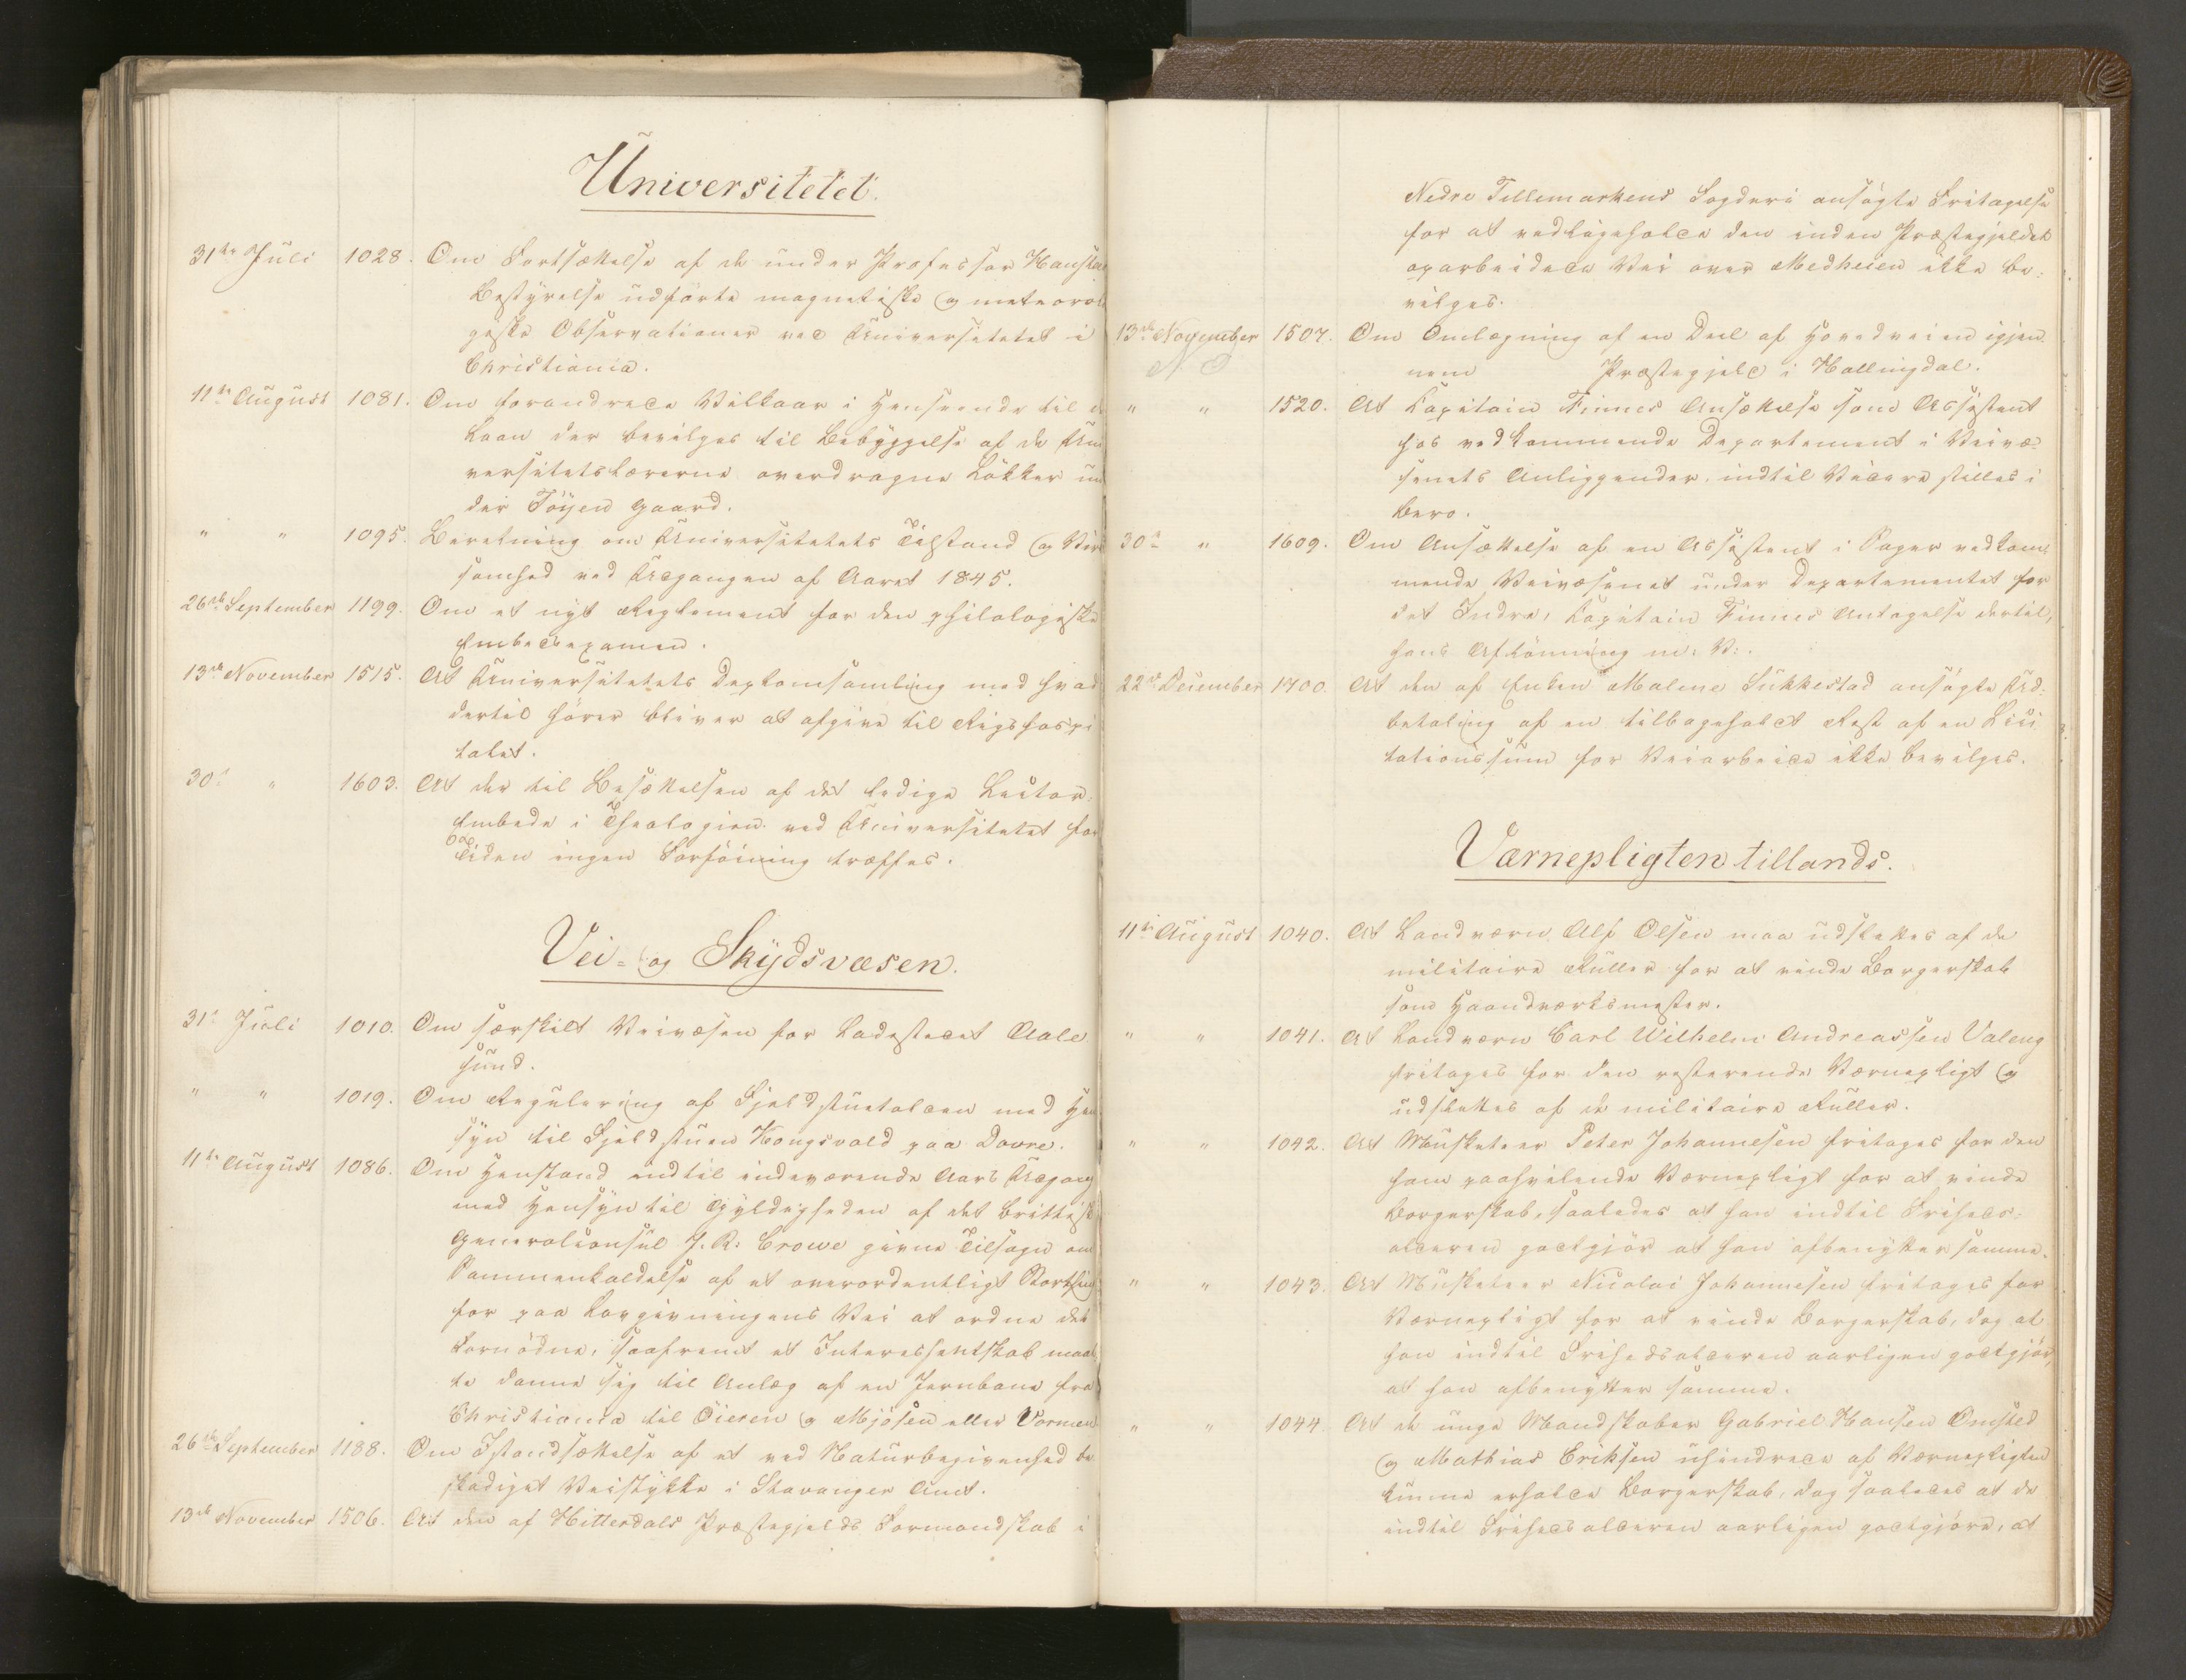 Universitetet.
31te Juli 1028. Om Fortsættelse af de under Professor Hanste
Bestyrelse udførte magnetiske og meteorol
giske Observationer ved Universitetet i
Christiania.
11te August 1081. Om forandrede Vilkaar i Henseende til de
Laan der bevilges til Bebyggelse af de Uni
versitetslærerne overdragne Løkker un
der Töyen Gaard.
" " 1095. Beretning om Universitetets Tilstand og Virk
somhed ved Udgangen af Aaret 1845.
26de September 1199. Om et nyt Reglement for den philologiske
Embedsexamen.
13de November 1515. At Universitetets Deplomsamling med hvad
dertil hører bliver at afgive til Rigshospi
talet.
30te " 1603. At der til Besættelsen af det ledige Lector-
Embede i Theologien ved Universitetet for
Tiden ingen Forföining træffes.
Vei- og Skydsvæsen.
31te Juli 1010. Om særskilt Veivæsen for Ladestedet Aale
sund.
" " 1019. Om Regulering af Fjeldstuetolden med Hen
syn til Fjeldstuen Kongsvold paa Dovre.
11te August 1086. Om Henstand indtil indeværende Aars Udgang
med Hensyn til Gyldigheden af det brittisk
Generalconsul J. R. Crowe givne Tilsagn om
Sammenkaldelse af et overordentligt Storthing
for paa Lovgivningens Vei at ordne det
Fornödne, saafremt et Interessentskab maat
te danne sig til Anlæg af en Jernbane fra
Christiania til Öieren og Mjösen eller Vormen
26de September 1188. Om Istandsættelse af et ved Naturbegivenhed be
skadiget Veistykke i Stavanger Amt.
13de November 1506. At den af Hitterdals Præstegjelds Formandskab i
Nedre Tellemarkens Fogderi ansögte Fritagelse
for at vedligeholde den inden Præstegjeldet
oparbeidede Vei over Medheien ikke be-
vilges.
13de November 1507. Om Omlægning af en Deel af Hovedveien igjen
nem Præstegjeld i Hallingdal.
" " 1520. At Capitain Finnes Ansættelse som Assistent
hos vedkommende Departement i Veivæ-
senets Anliggender indtil Videre stilles i
Bero.
30te " 1609. Om Ansættelse af en Assistent i Sager vedkom-
mende Veivæsenet under Departementet for
det Indre, Capitain Finnes Antagelse dertil,
hans Aflönning m: V:.
22de December 1700. At den af Enken Malene Sukkestad ansögte Ud-
betaling af en tilbageholdt Rest af en Lici
tationssum for Veiarbeide ikke bevilges.
Værnepligten tillands.
11te August 1040. At Landværn Alf Olsen maa udslettes af de
militaire Ruller for at vinde Borgerskab
som Haandværksmester.
" " 1041. At Landværn Carl Wilhelm Andreassen Valeng
fritages for den resterende Værnepligt og
udslettes af de militaire Ruller.
" " 1042. At Musketeer Peter Johannesen fritages for den
ham paahvilende Værnepligt for at vinde
Borgerskab, saaledes at han indtil Friheds-
alderen godtgjör at han afbenytter samme.
" " 1043. At Musketeer Nicolai Johannesen fritages for
Værnepligt for at vinde Borgerskab, dog at
han indtil Frihedsalderen aarligen godtgjör,
at han afbenytter samme.
" " 1044. At de unge Mandskaber Gabriel Hansen Omsted
og Mathias Eriksen uhindrede af Værnepligten
kunne erholde Borgerskab, dog saaledes at de
indtil Frihedsalderen aarligen godtgjöre, at